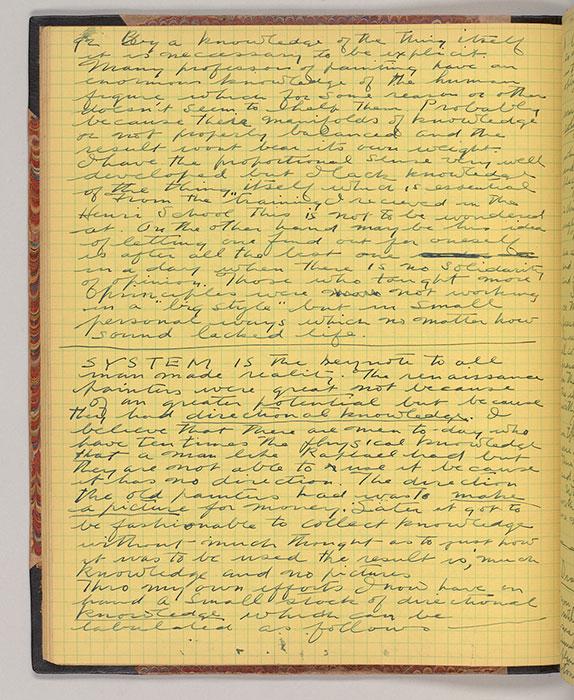 By a knowledge of the thing itself
it is necessary to be explicit.
Many professors of painting have an
enormous knowledge of the human
figure which for some reason or other
doesn't seem to help them. Probably
because there manifolds of knowledge
or not properly balanced and the
result wont bear its own weight.
I have the proportional sense very well
developed but I lack knowledge
of the thing itself which is essential
From the training I recieved in the
Henri School this is not to be wondered
at. On the other hand may be his idea
of letting one find out for oneself
is after all the best one
in a day when there is no solidarity
of opinion. Those who taught more
principles were not working
in a "big style" but in small
personal ways which no matter how
sound lacked life.
SYSTEM is the keynote to all
man made reality. The renaissance
painters were great not because
of an greater potential but because
they had directional knowledge. I
believe that there are men to-day who
have ten times the physical knowledge
that a man like Raphael had but
they are not able to use it because
it has no direction. The direction
the old painters had was to make
a picture for money. Later it got to
be fashionable to collect knowledge
without much thought as to just how
it was to be used the result is, much
knowledge and no pictures
Thro my own efforts I now have on
hand a small stock of directional
knowledge which can be
tabulated as follows